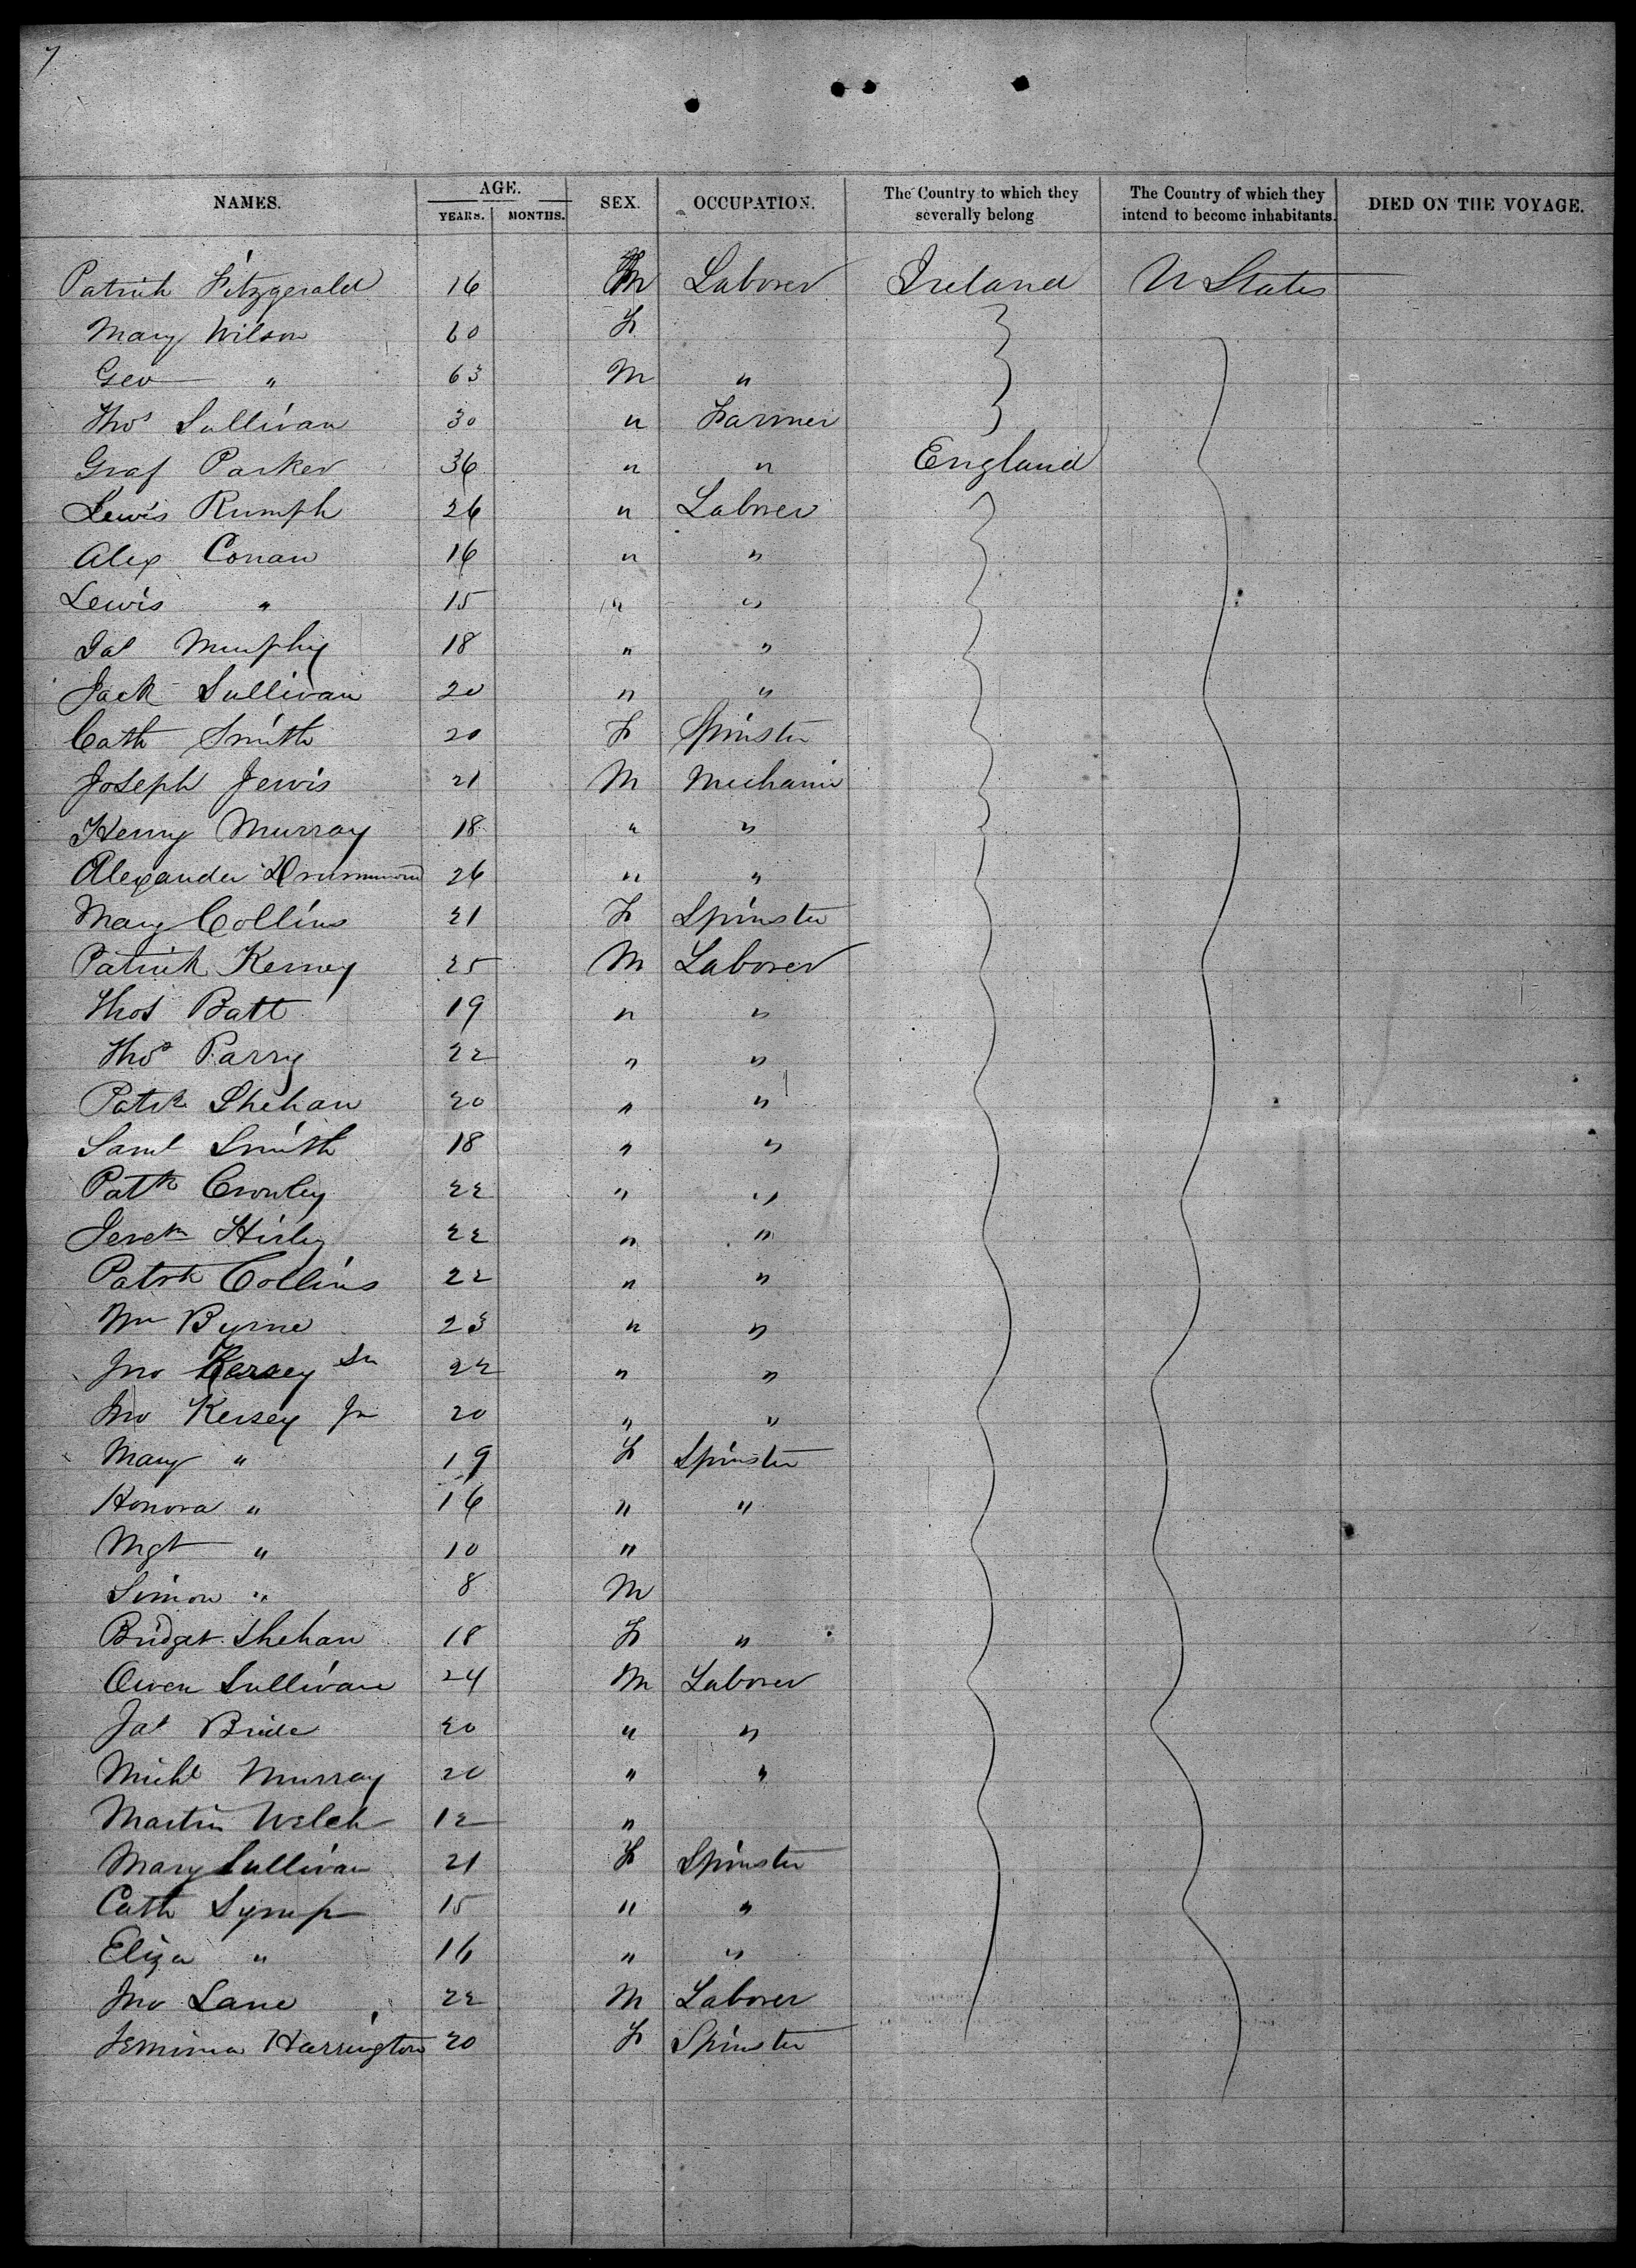 7
NAMES. AGE. YEARS. MONTHS. SEX. OCCUPATION. The Country to which they severally belong The Country of which they intend to become inhabitants. DIED ON THE VOYAGE.
Patrick Fitzgerald 16 M Laborer Ireland U States
Mary Wilson 60 F
Geo " 63 M "
Thos Sullivan 30 " Farmer
Graf Parker 36 " " England
Lewis Rumph 26 " Laborer
Alex Conan 16 " "
Lewis " 15 " "
Jas Murphy 18 " "
Jack Sullivan 20 " "
Cath Smith 20 F Spinster
Joseph Jewis 21 M Mechanic
Henry Murray 18 " "
Alexander Drummond 26 " "
Mary Collins 21 F Spinster
Patrick Kerney 25 M Laborer
Thos Batt 19 " "
Thos Parry 22 " "
Patk Shehan 20 " "
Saml Smith 18 " "
Patk Crowley 22 " "
Jerem 22 " "
Patrk Collins 22 " "
Wm Byrne 23 " "
Jno Kersey Sn 22 " "
Jno Kersey Jn 20 " "
Mary " 19 F Spinster
Honora " 16 " "
Mgt " 10 "
Simon " 8 M
Bridget Shehan 18 F "
Owen Sullivan 24 M Laborer
Jas 20 " "
Michl Murray 20 " "
Martin Welch 12 "
Mary Sullivan 21 F Spinster
Cath Synup 15 " "
Eliza " 16 " "
Jno Lane 22 M Laborer
Jemima Harrington 20 F Spinster